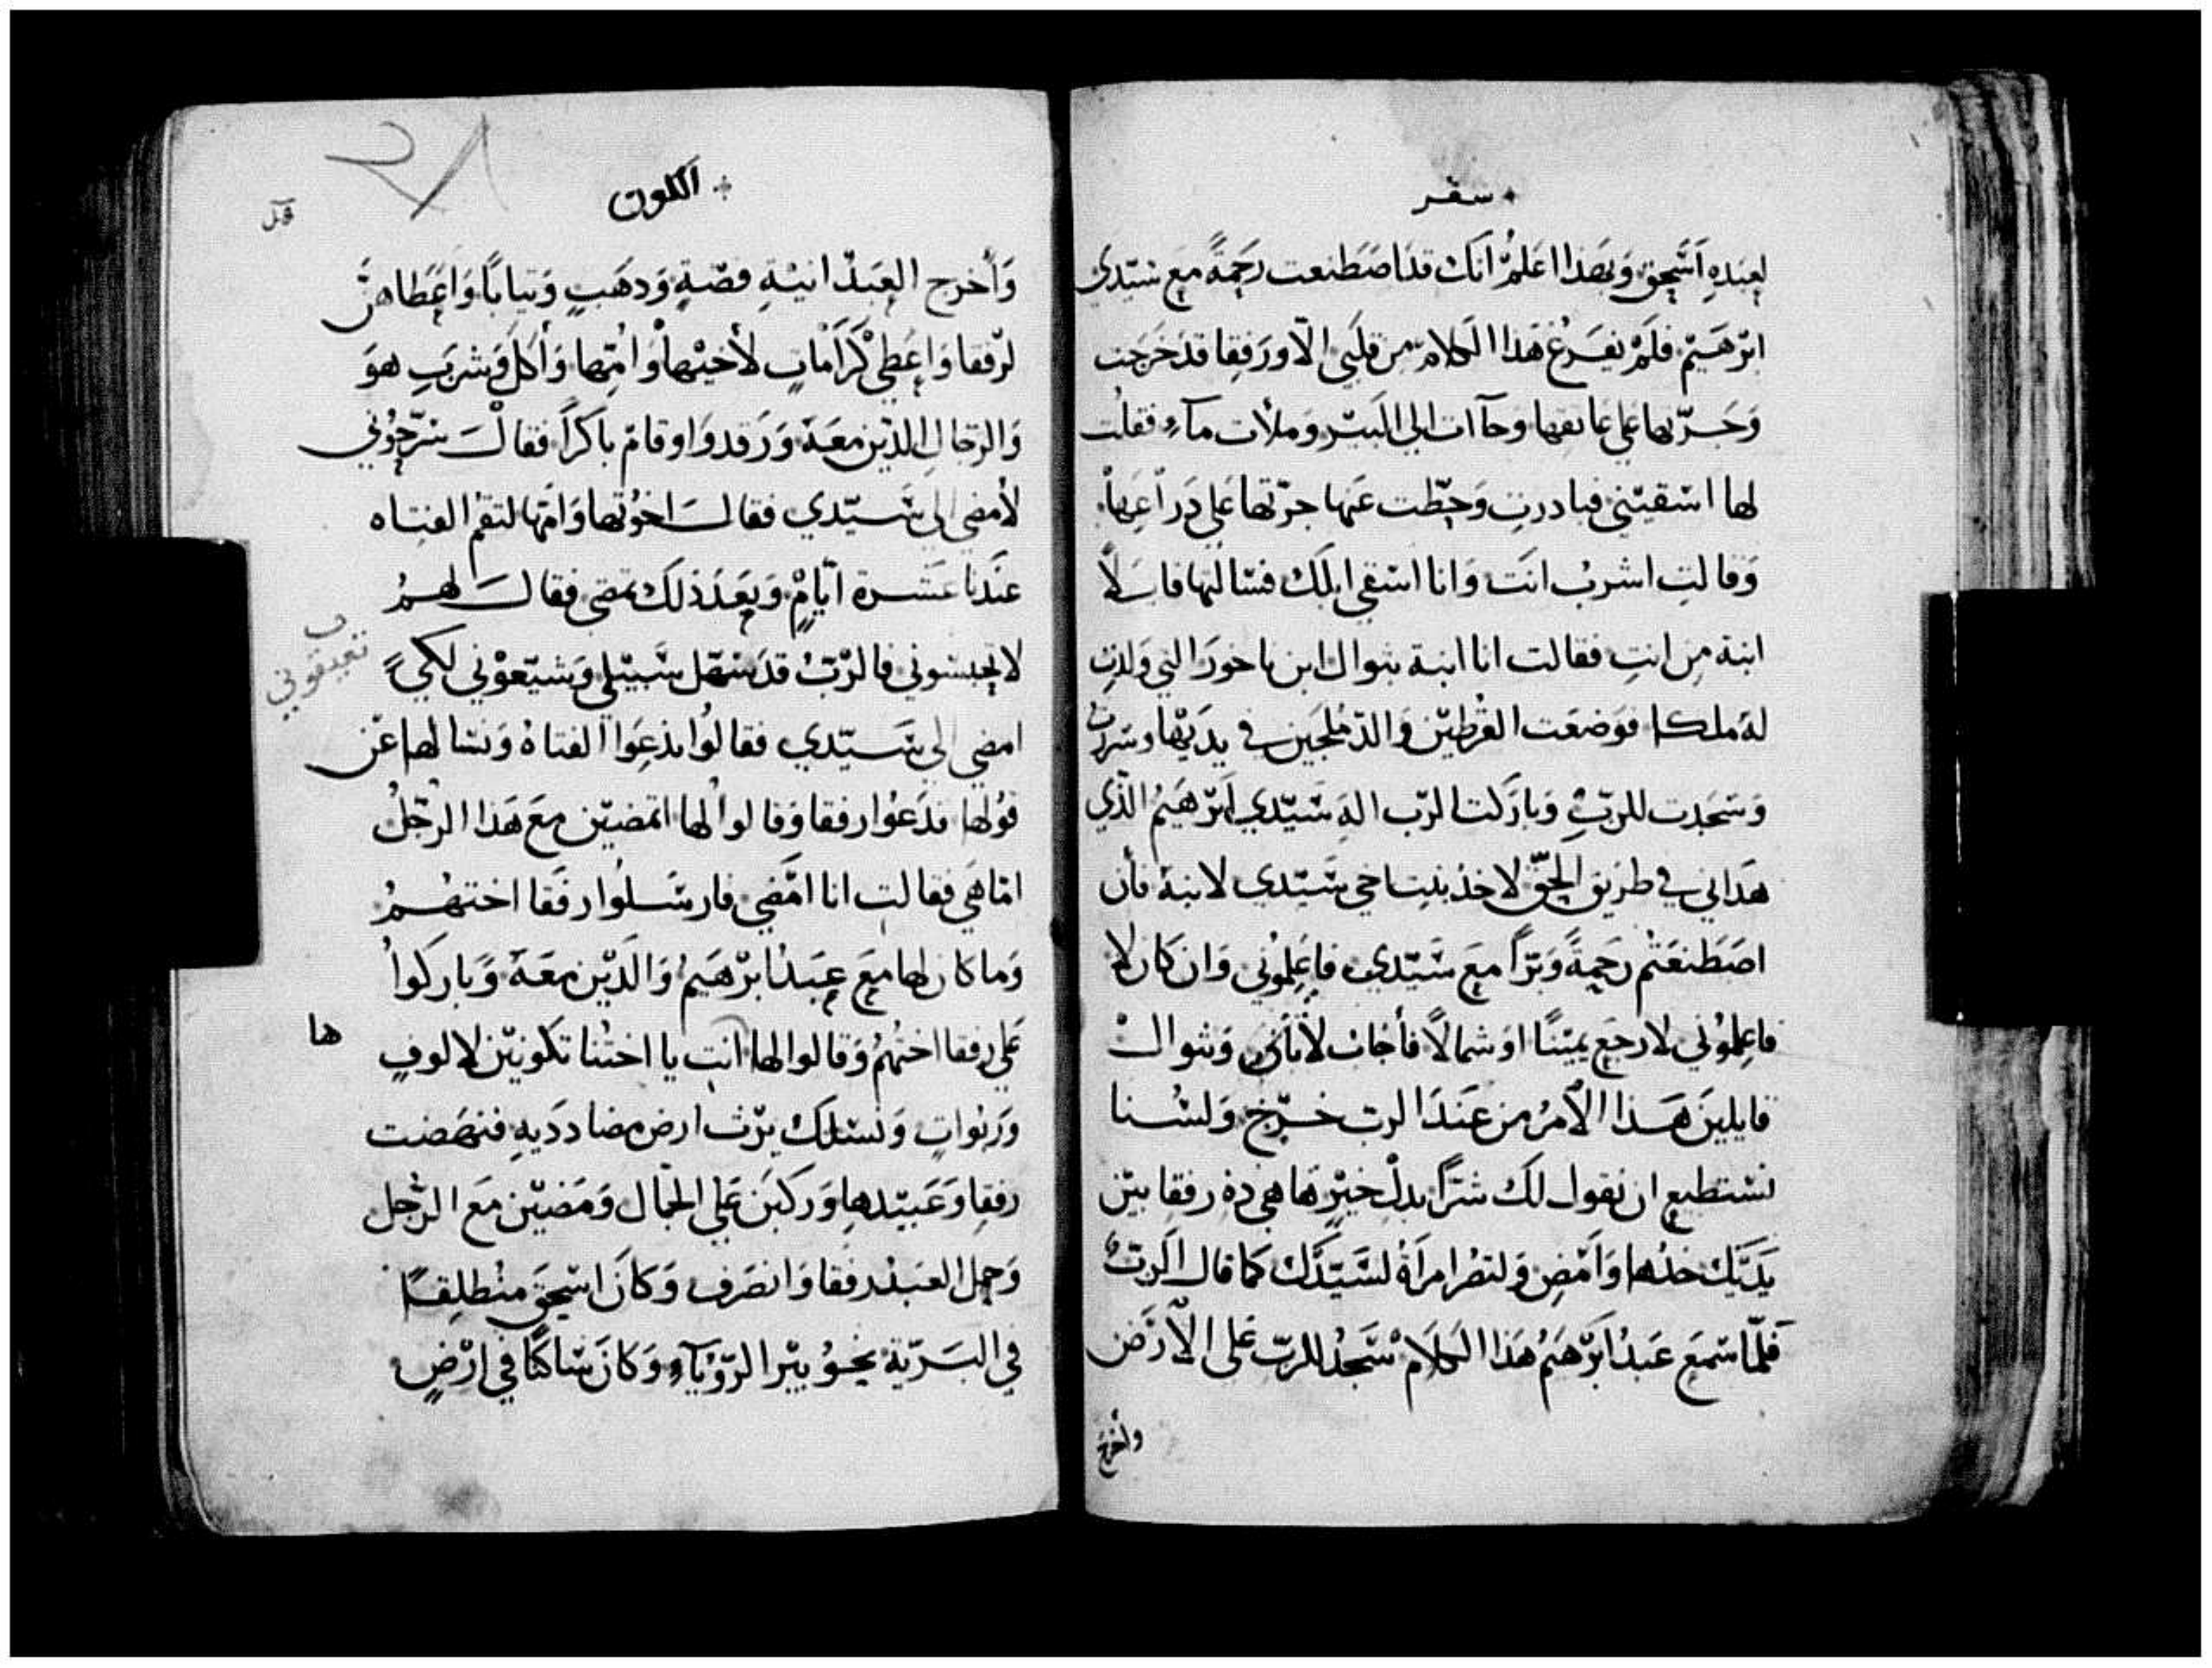 سفر
لعبده اسحق وبهذا اعلم انك قد اصطنعت رحمة مع سيدي
ابرهيم فلم يفرغ هذا الكلام من قلبي الا ورفقا قد خرجت
وجرتها علي عاتقها وجاات الي البير وملأت مآء فقلت
لها اسقيني فبادرت وحطت عنها جرتها علي دراعها
وقالت اشرب انت وانا اسقي ابلك فسالتها قايلاً
ابنة من انت فقالت انا ابنة بتوال ابن ناحور التي ولدت
له ملكا فوضعت القرطين والدملجين في يديها وسررت
وسجدت للرب وباركت الرب اله سيدي ابرهيم الذي
هداني في طريق الحق لاخذ بنت اخي سيدي لابنه فأن
اصطنعتم رحمةً وبراً مع سيدي فاعلموني وان كان لا
فاعلموني لارجع يميناً او شمالاً فأجاب لابان وبتوال
قايلين هذا الأمر من عند الرب خرج ولسنا
نستطيع ان نقول لك شراً بدل خيرٍ ها هي ذه رفقا بين
يديك خذها وامض ولتصر امرأة لسيدك كما قال الرب
فلما سمع عبد ابرهيم هذا الكلام سجد للرب على الأرض
وأخرج
الكون
وأخرج العبد انية فضةٍ ودهبٍ وتياباً واعطاهن
لرفقا واعطي كرامات لأخيها وامها وأكل وشرب هو
والرجال الذين معه ورقدوا وقام باكراً فقال سرحوني
لأمضي الي سيدي فقال اخوتها وامها لتقم الفتاه
عندنا عشرة ايامٍ وبعد ذلك تمضي فقال لهم
لا تحبسوني فالرب قد سهل سبيلي وشيعوني لكي
تعيقوني
امضي الي سيدي فقالوا ندعوا الفتاة ونسالها عن
قولها فدعوا رفقا وقالوا لها اتمضين مع هذا الرجل
اما هي فقالت انا امضي فارسلوا رفقا اختهم
وما كان لها مع عبد ابرهيم والذين معه وباركوا
علي رفقا اختهم وقالوا لها انت يا اختنا تكونين لالوف
ها
وربوات ونسلك يرث ارض مضادديه فنهضت
رفقا وعبيدها وركبن علي الجمال ومضين مع الرجل
وحمل العبد رفقا وانصرف وكان اسحق منطلقاً
في البرية نحو بير الرؤيآء وكان ساكناً في ارضٍ